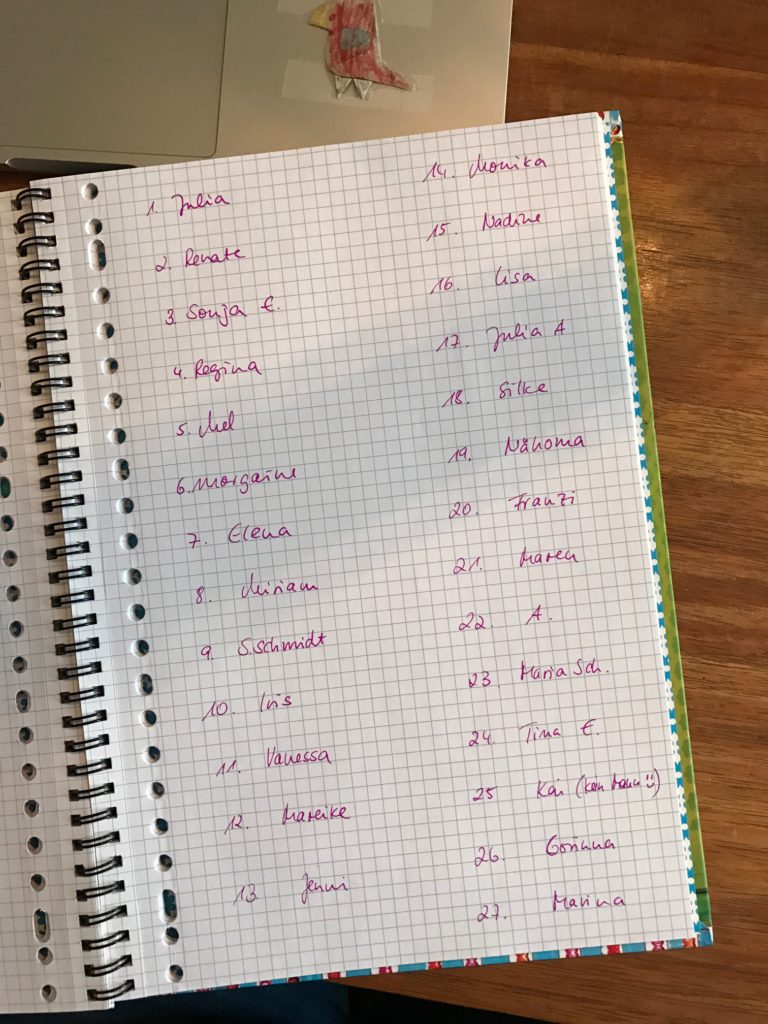 1. Julia
2. Renate
3. Sonja E.
4. Regina
5. Mel
6. Morgaine
7. Elena
8. Miriam
9. S. Schmidt
10. Iris
11. Vanessa
12. Mareike
13 Jenni
14. Monika
15. Nadine
16. Lisa
17. Julia A
18. Silke
19. Nähoma
20. Franzi
21. Maren
22. A.
23. Maria Sch.
24. Tina E.
25 Kai
26. Corinna
27. Marina